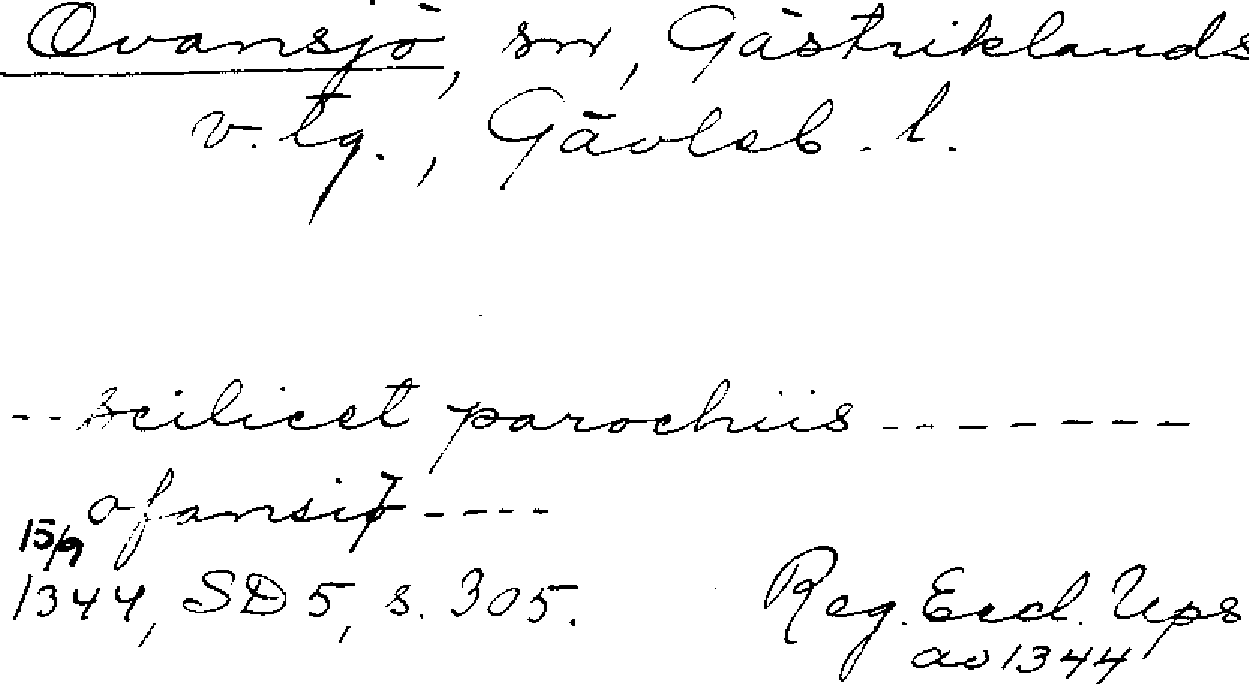 Ovansjö, sn, Gästriklands
v. tg., Gävleb. l.
-- scilicet parochiis -------
ofansiø ----
15/9
1344, SD 5, s. 305.
Reg. Eccl. Ups
av 1344